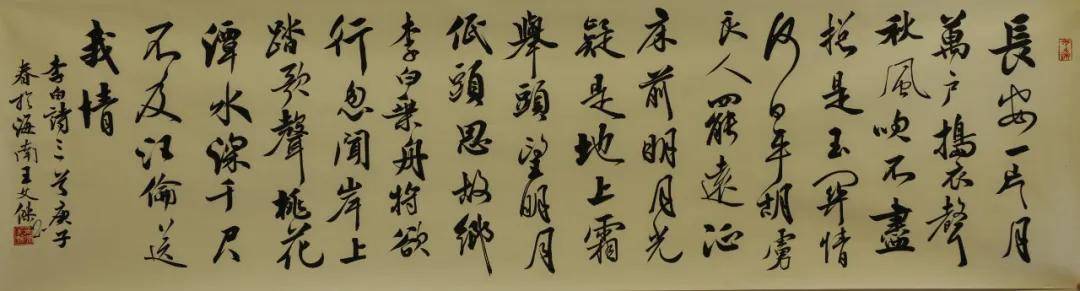 長安一片月
萬户搗衣聲
秋風吹不盡
揔是玉関情
何日平胡虜
良人罷遠征
床前明月光
疑是地上霜
舉頭望明月
低頭思故鄉
李白乘舟將欲
行忽聞岸上
踏歌聲桃花
潭水深千尺
不及汪倫送
我情
李白詩三首庚子
春於海南王文傑